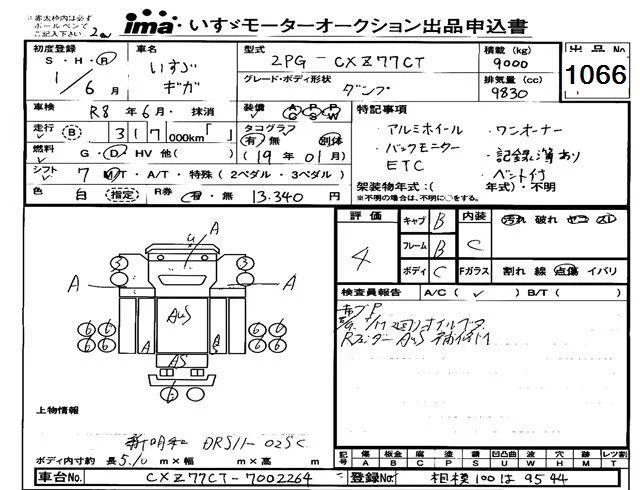 ※赤太枠内は必ず
ボールペンで
ご記入下さい
ima いすゞモーターオークション出品申込書
初度登録 S・H・R 1/6月
車名 いすゞ ギガ
型式 2PG-CXZ77CT
積載(kg) 9000
出品No. 1066
グレード・ボディ形状 ダンプ
排気量(cc) 9830
車検 R8年6月・抹消
装備 AC PS PW
特記事項
走行 B 317,000km「 」
タコグラフ 有 無 別体
・アルミホイール ・ワンオーナー
燃料 G・D・HV 他( )
(19年01月)
・バックモニター ・記録簿あり
シフト 7 MT・A/T・特殊(2ペダル・3ペダル)
ETC ・ベント付
色 白 指定 R券 有・無 13,340円
架装物年式:( 年式)・不明
※不明の場合は、不明に○をする。
評価 4
キャブ B 内装 汚れ 破れ ヤコゲ スレ
フレーム B C
ボディ C Fガラス 割れ 線 点傷 イバリ
検査員報告 A/C( ✓ ) B/T( )
A
u
3 3
A A
AuS
6 6 6 6
A A
6 6 6 6
AS
6
上物情報
新明和 DRS11-02SC
ボディ内寸約 長5.10m×幅 m×高 m
記号 傷 A 板金 B 腐 C 塗 P 錆 S 凹凸曲 U 波 W 穴 H 跡 M レツ割 T
車台No. CXZ77CT-7002264
登録No. 相模100は9544